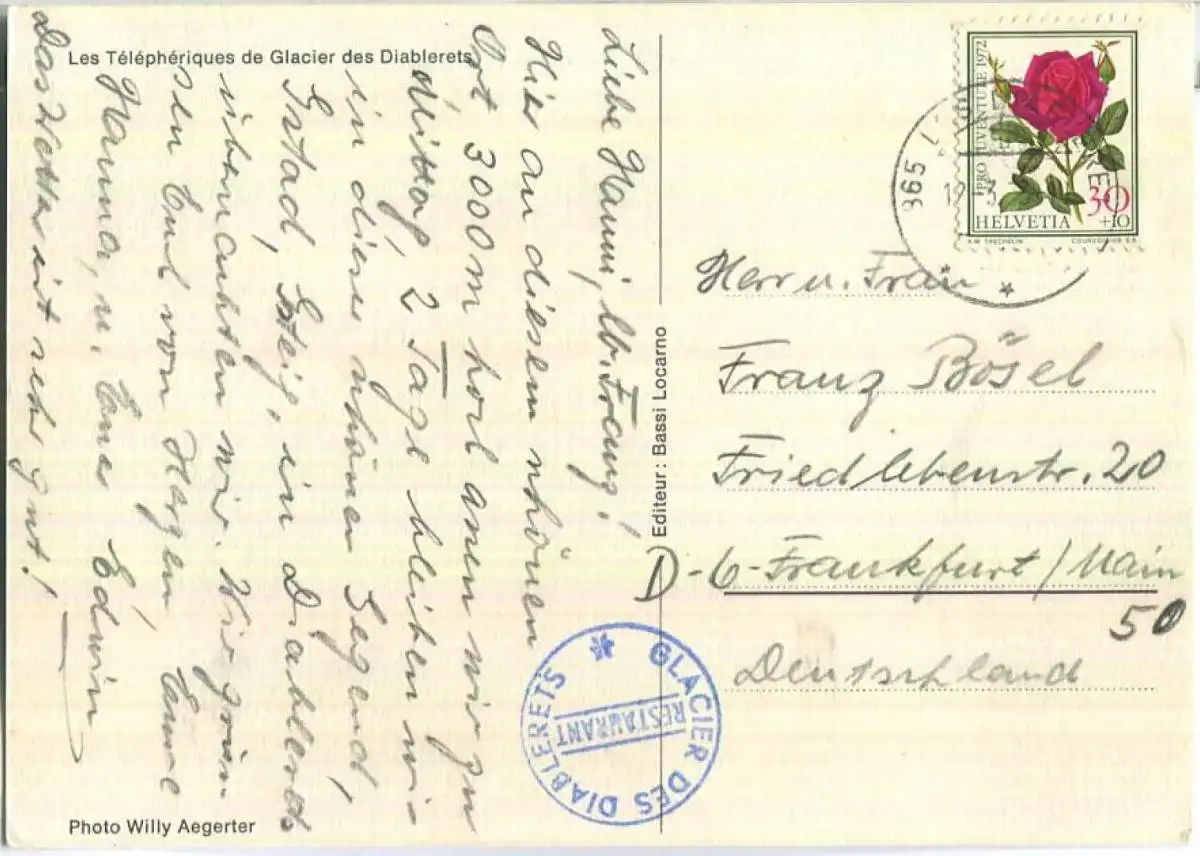 Les Téléphériques de Glacier des Diablerets
Liebe Hanni, lb. Franz!
Hier an diesem schönen
Ort, 3000 m hoch assen wir zu
Mittag, 2 Tage bleiben wir
in dieser schönen Gegend,
Gstad, in Diablerets
übernachten wir. Wir
sen Euch von Herzen Eure
Hanna, u Edwin
Das Wetter ist sehr gut.
Photo Willy Aegerter
Editeur: Bassi Locarno
PRO JUVENTUTE 1972
30
+10
HELVETIA
COURVOISIER S.A.
1865
Herr u. Frau
Franz Bösel
Friedlebenstr. 20
D-6-Frankfurt/Main
50
Deutschland
GLACIER DES DIABLERETS
RESTAURANT